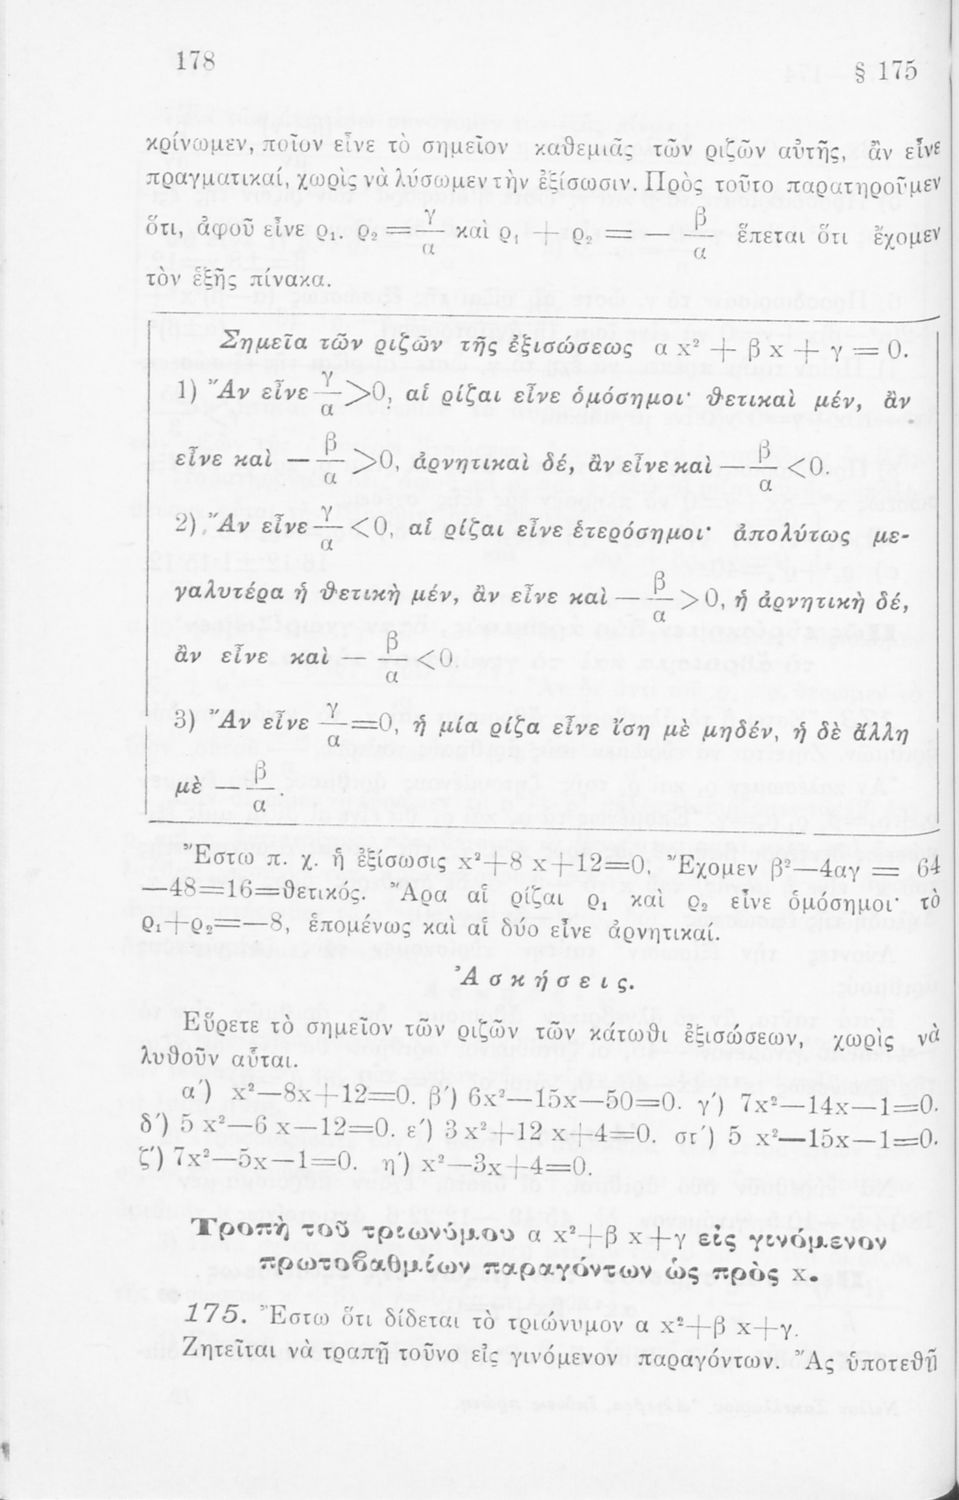 178
§ 175
κρίνωμεν, ποῖον εἶνε τὸ σημεῖον καθεμιᾶς τῶν ριζῶν αὐτῆς, ἂν εἶνε
πραγματικαί, χωρὶς νὰ λύσωμεν τὴν ἐξίσωσιν. Πρὸς τοῦτο παρατηροῦμεν
ὅτι, ἀφοῦ εἶνε ρ₁. ρ₂ = γ/α καὶ ρ₁ + ρ₂ = — β/α ἕπεται ὅτι ἔχομεν
τὸν ἑξῆς πίνακα.
Σημεῖα τῶν ριζῶν τῆς ἐξισώσεως α x² + β x + γ = 0.
1) Ἂν εἶνε γ/α >0, αἱ ρίζαι εἶνε ὁμόσημοι· θετικαὶ μέν, ἂν
εἶνε καὶ — β/α >0, ἀρνητικαὶ δέ, ἂν εἶνε καὶ — β/α <0.
2) Ἂν εἶνε γ/α <0, αἱ ρίζαι εἶνε ἑτερόσημοι· ἀπολύτως με-
γαλυτέρα ἡ θετικὴ μέν, ἂν εἶνε καὶ — β/α >0, ἡ ἀρνητικὴ δέ,
ἂν εἶνε καὶ — β/α <0.
3) Ἂν εἶνε γ/α =0, ἡ μία ρίζα εἶνε ἴση μὲ μηδέν, ἡ δὲ ἄλλη
μὲ — β/α.
Ἔστω π. χ. ἡ ἐξίσωσις x²+8 x+12=0. Ἔχομεν β²—4αγ = 64
—48=16=θετικός. Ἄρα αἱ ρίζαι ρ₁ καὶ ρ₂ εἶνε ὁμόσημοι· τὸ
ρ₁+ρ₂=—8, ἑπομένως καὶ αἱ δύο εἶνε ἀρνητικαί.
Ἀσκήσεις.
Εὕρετε τὸ σημεῖον τῶν ριζῶν τῶν κάτωθι ἐξισώσεων, χωρὶς νὰ
λυθοῦν αὗται.
α') x²—8x+12=0. β') 6x²—15x—50=0. γ') 7x²—14x—1=0.
δ') 5 x²—6 x—12=0. ε') 3 x²+12 x+4=0. στ') 5 x²—15x—1=0.
ζ') 7x²—5x—1=0. η') x²—3x+4=0.
Τροπὴ τοῦ τριωνύμου α x²+β x+γ εἰς γινόμενον
πρωτοβαθμίων παραγόντων ὡς πρὸς x.
175. Ἔστω ὅτι δίδεται τὸ τριώνυμον α x²+β x+γ.
Ζητεῖται νὰ τραπῇ τοῦνο εἰς γινόμενον παραγόντων. Ἂς ὑποτεθῇ